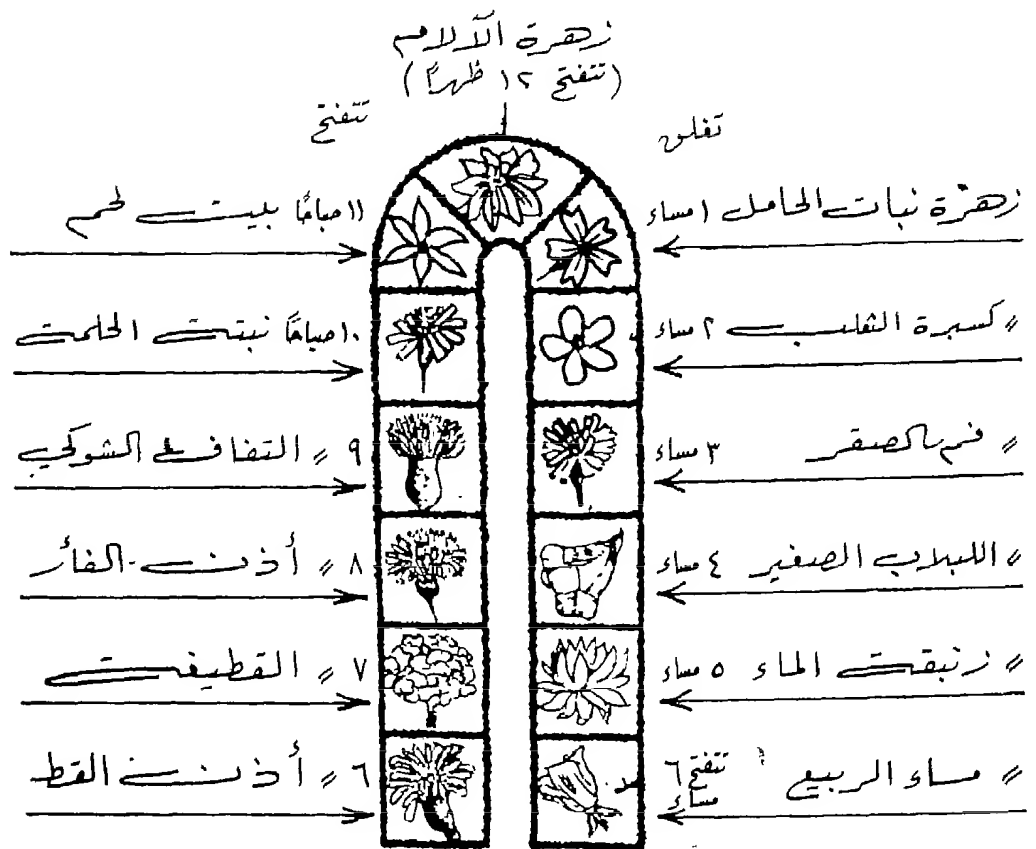 زهرة الآلام
(تتفتح ١٢ ظهراً)
تغلق
تتفتح
زهرة نبات الحامل ١ مساء
١١ صباحًا بليت لحم
〃 كسبرة الثعلب ٢ مساء
١٠ صباحًا نبتة الحلمة
〃 فم الصقر ٣ مساء
٩ 〃 التفاف الشوكي
〃 اللبلاب الصغير ٤ مساء
٨ 〃 أذن الفأر
〃 زنبقة الماء ٥ مساء
٧ 〃 القطيفة
〃 مساء الربيع تتفتح ٦ مساء
٦ 〃 أذن القط